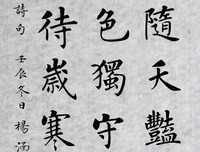 隨夭豔
色獨守
待歲寒
詩句 壬辰冬日 楊涵